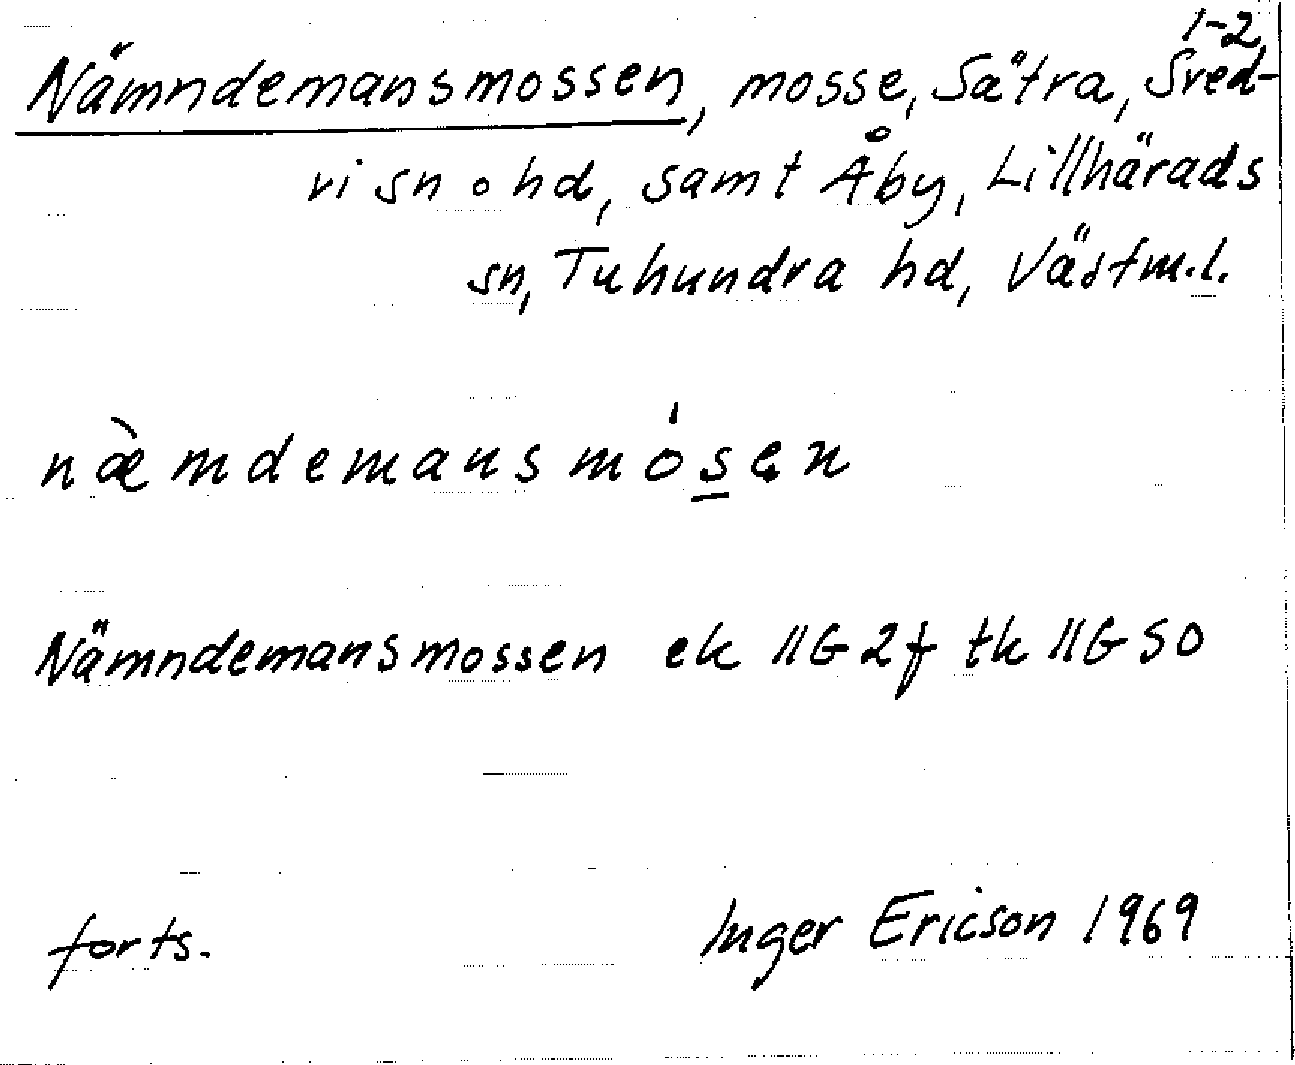 1-2
Nämndemansmossen, mosse, Såtra, Sved-
vi sn o hd, samt Åby, Lillhärads
sn, Tuhundra hd, Västm.l.
næ̀mdemansmósen
Nämndemansmossen ek 11G2f tk 11G SO
forts. Inger Ericson 1969